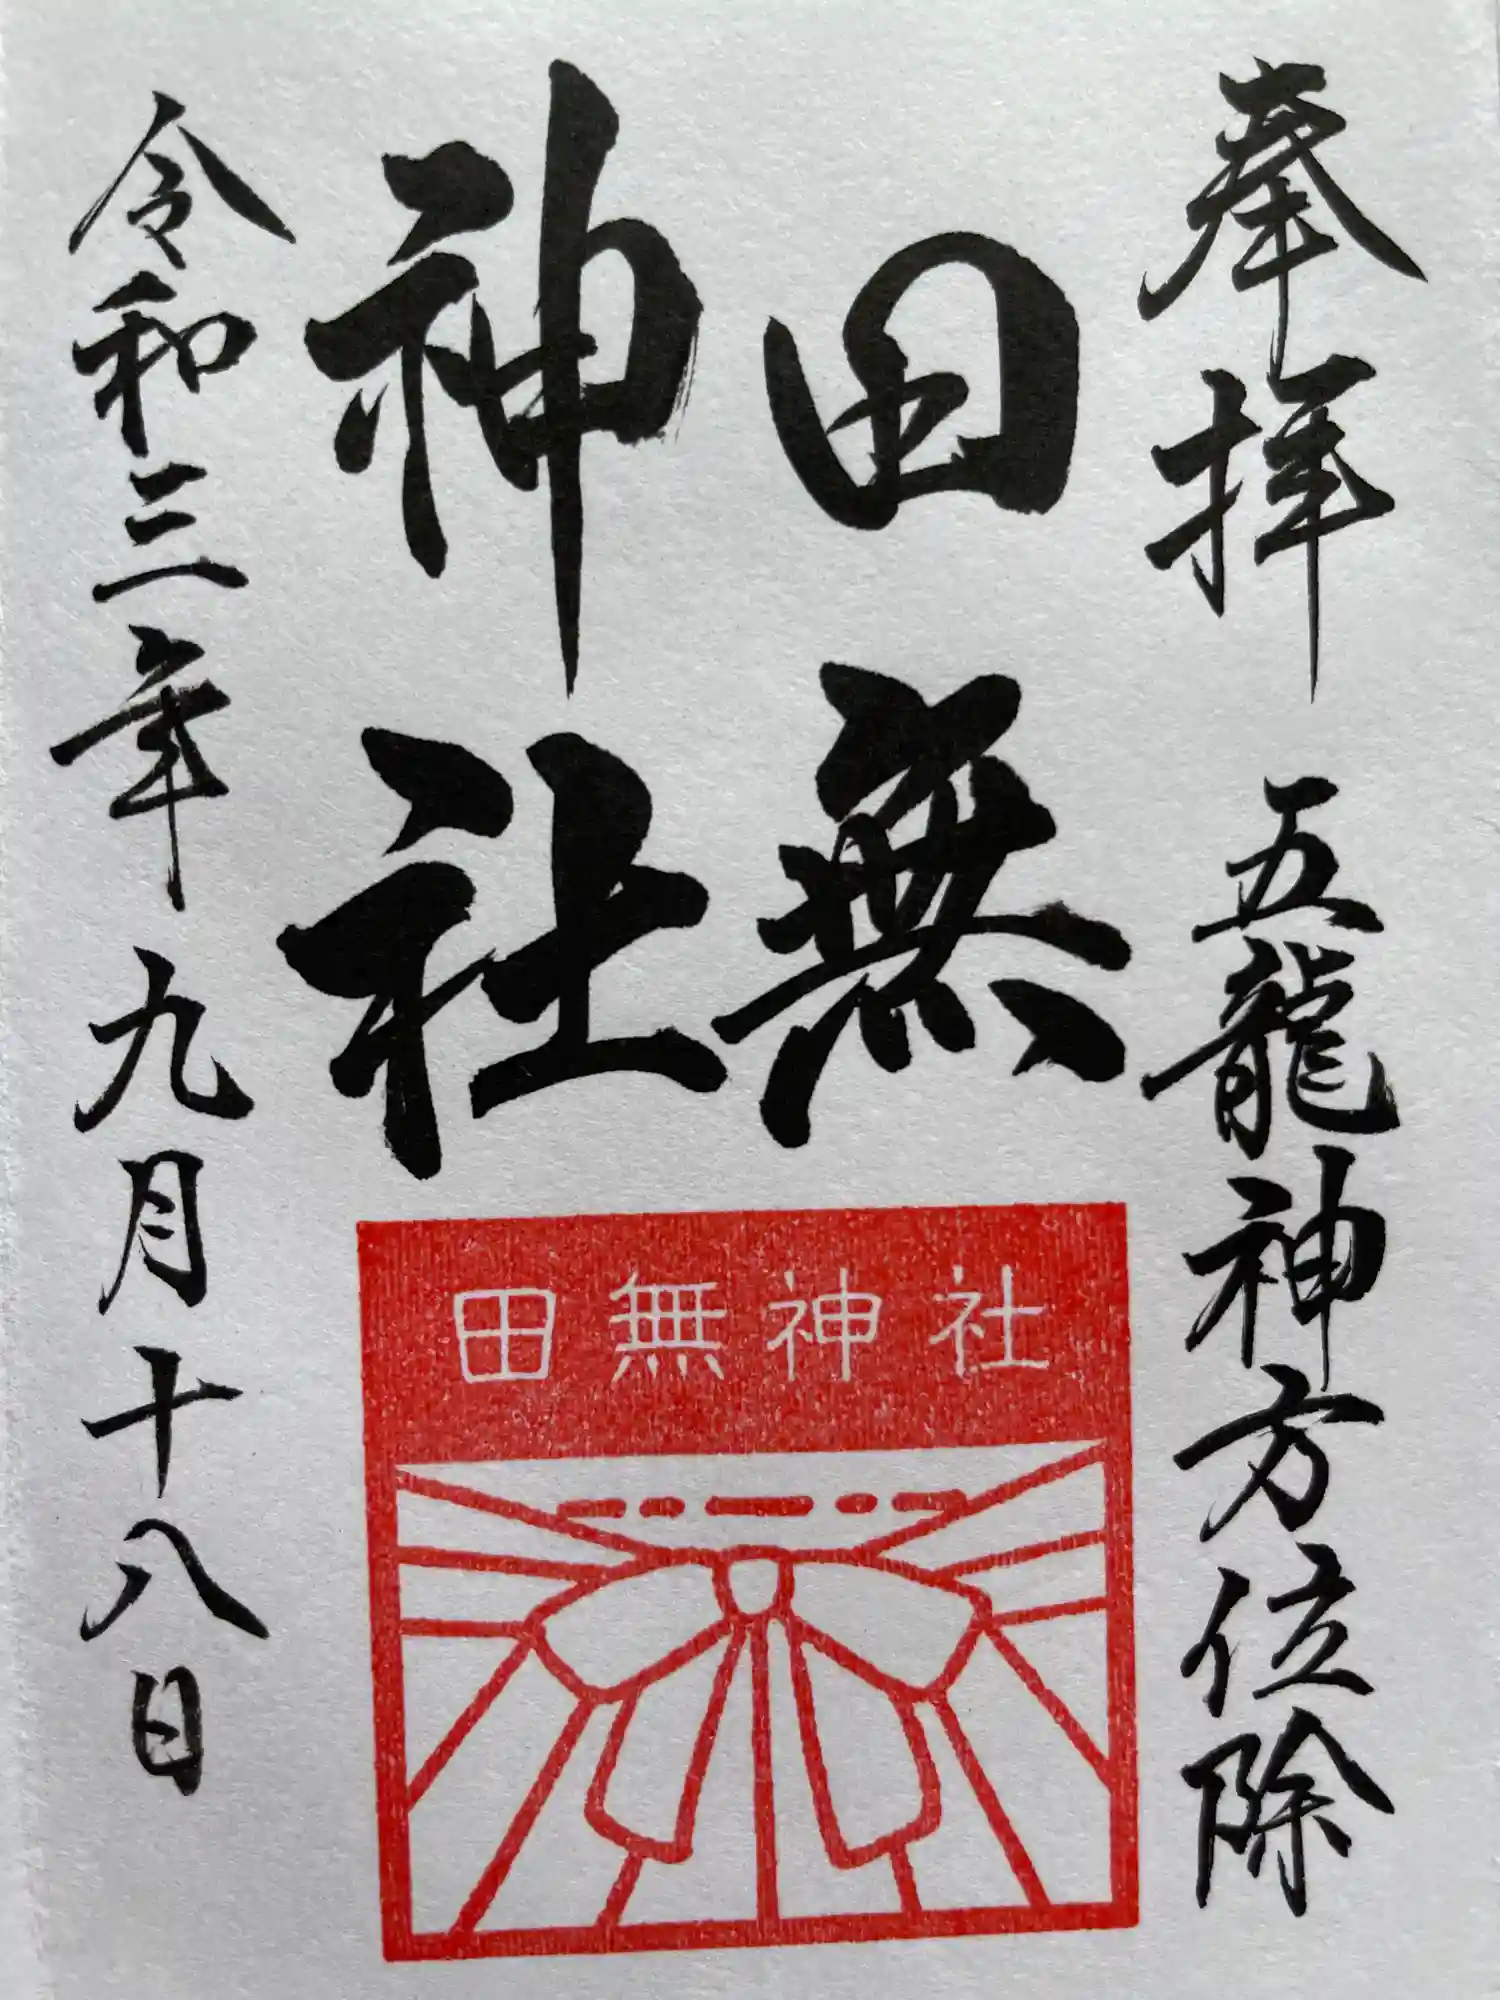 奉拝 五龍神方位除
田無
神社
田無神社
令和三年九月十八日